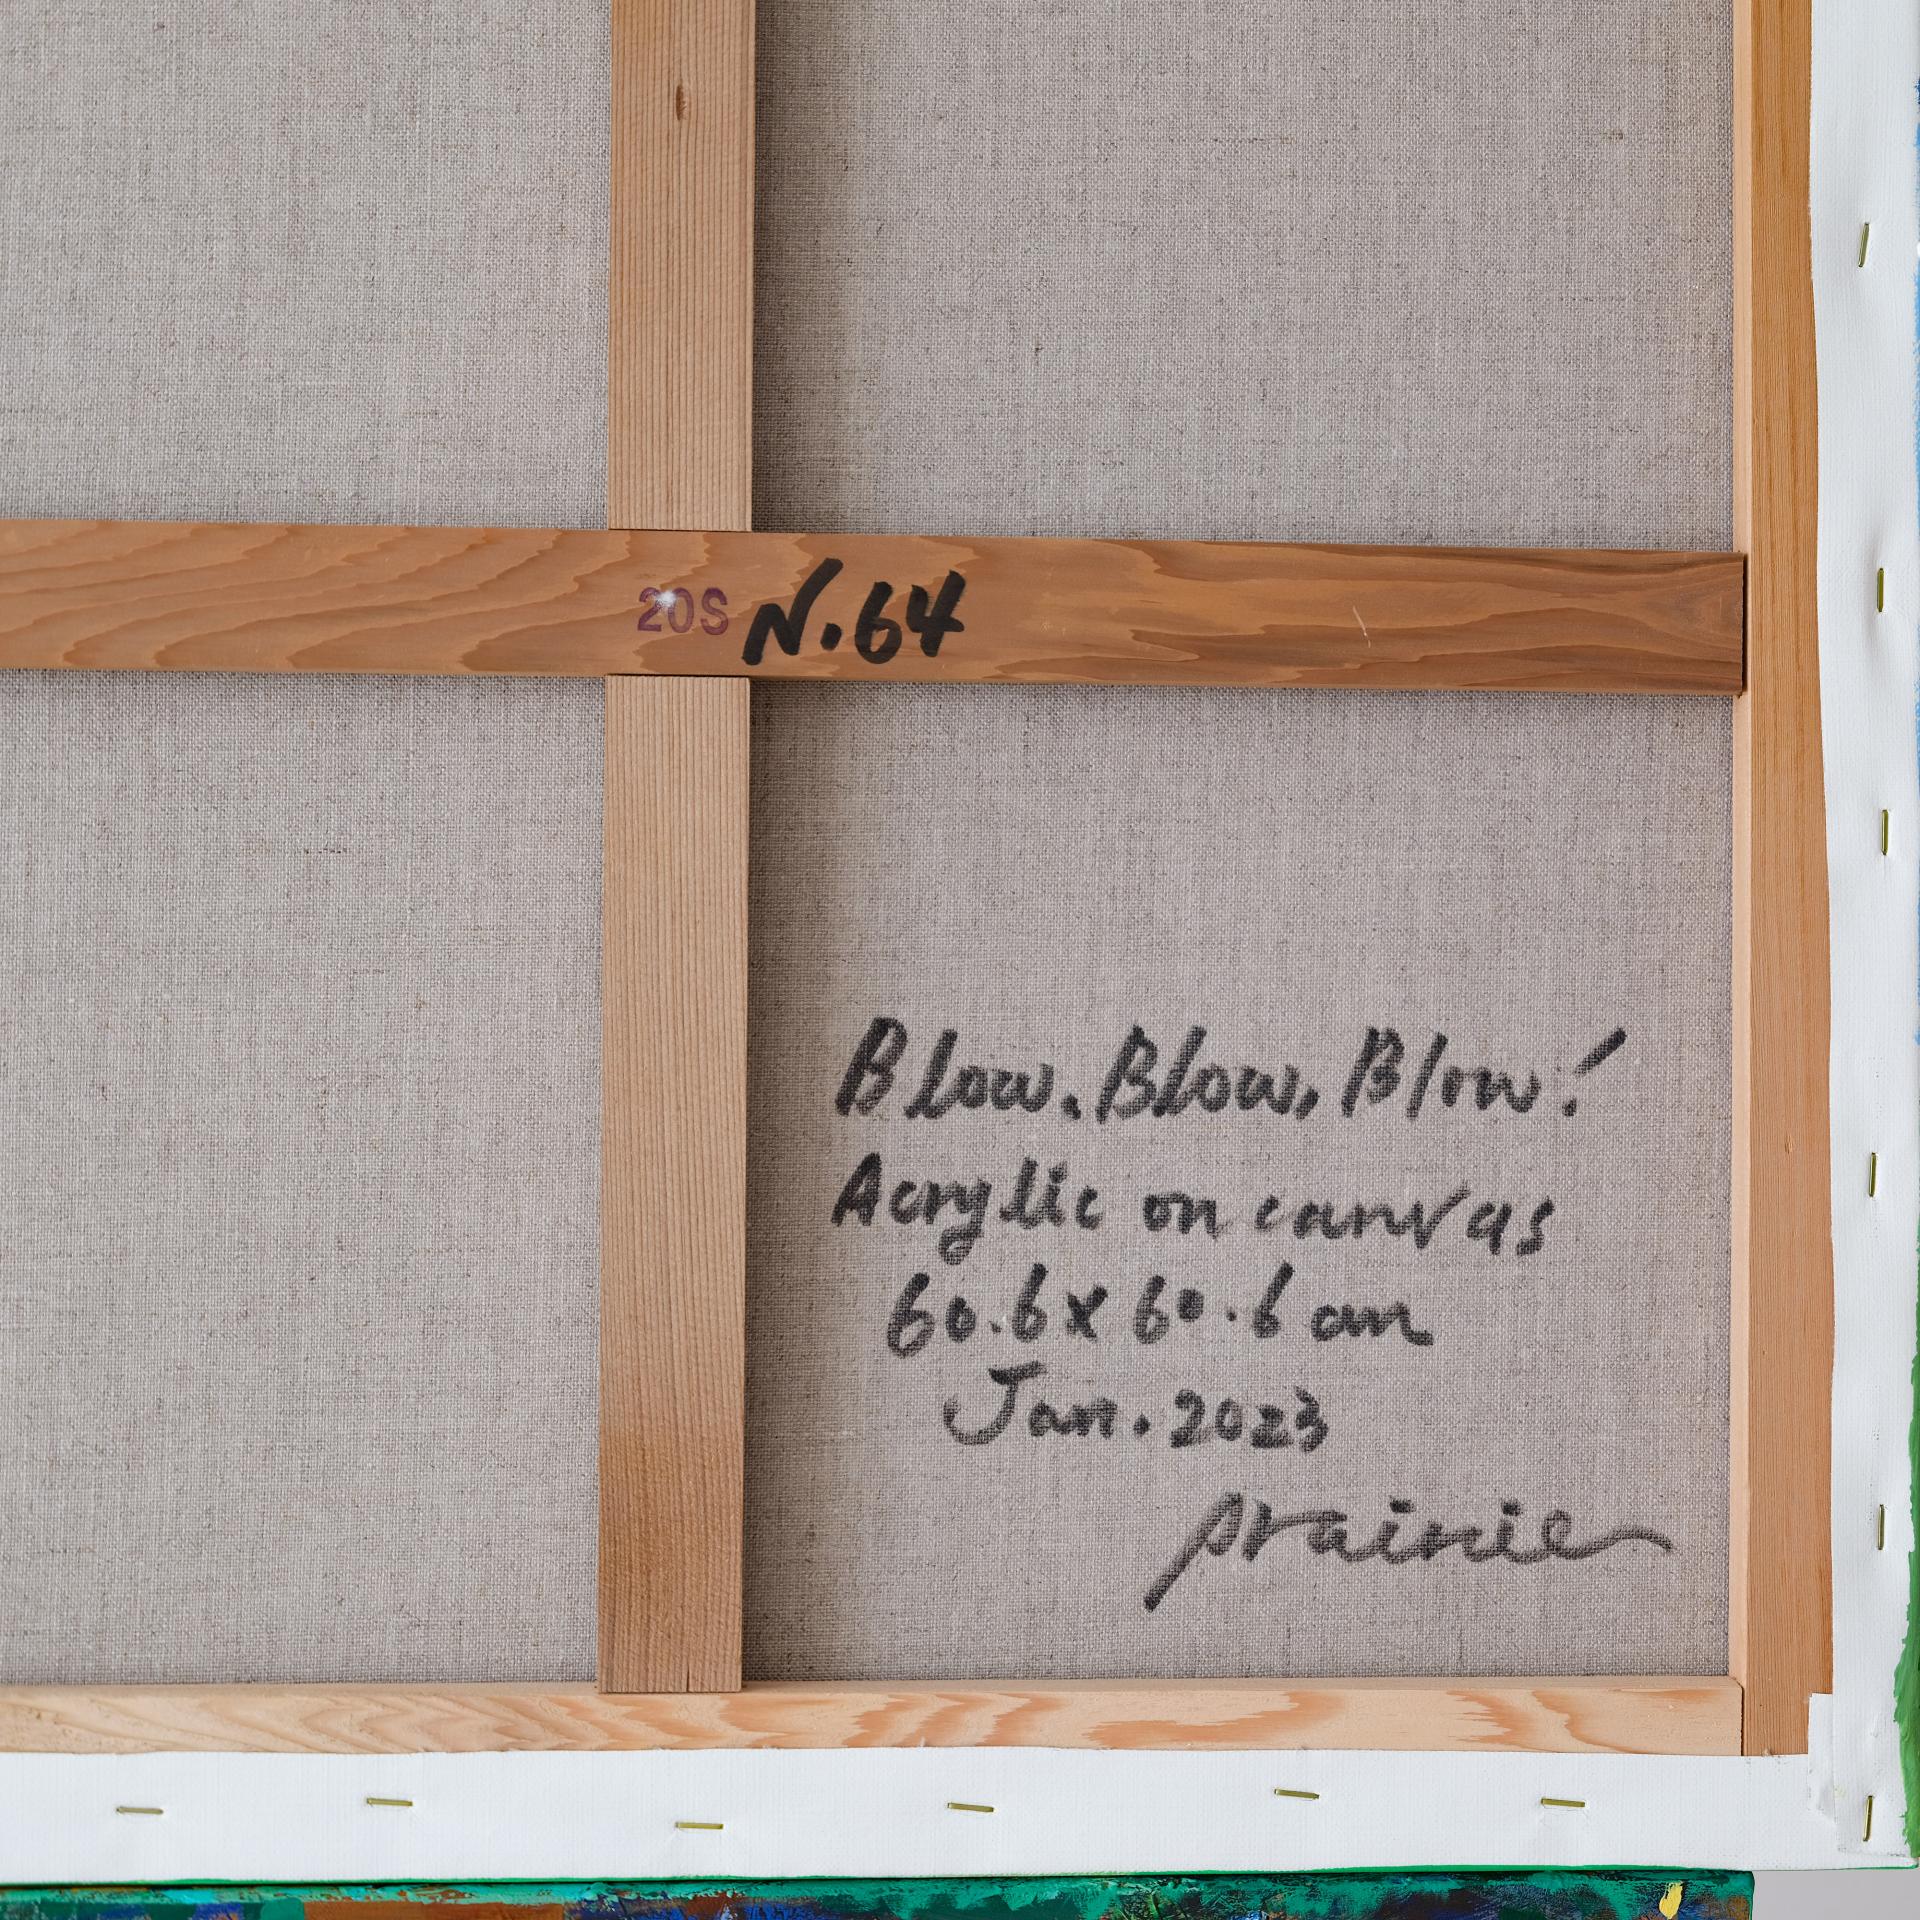 20S N.64
Blow. Blow, Blow!
Acrylic on canvas
60.6 x 60.6 cm
Jan. 2023
prairie